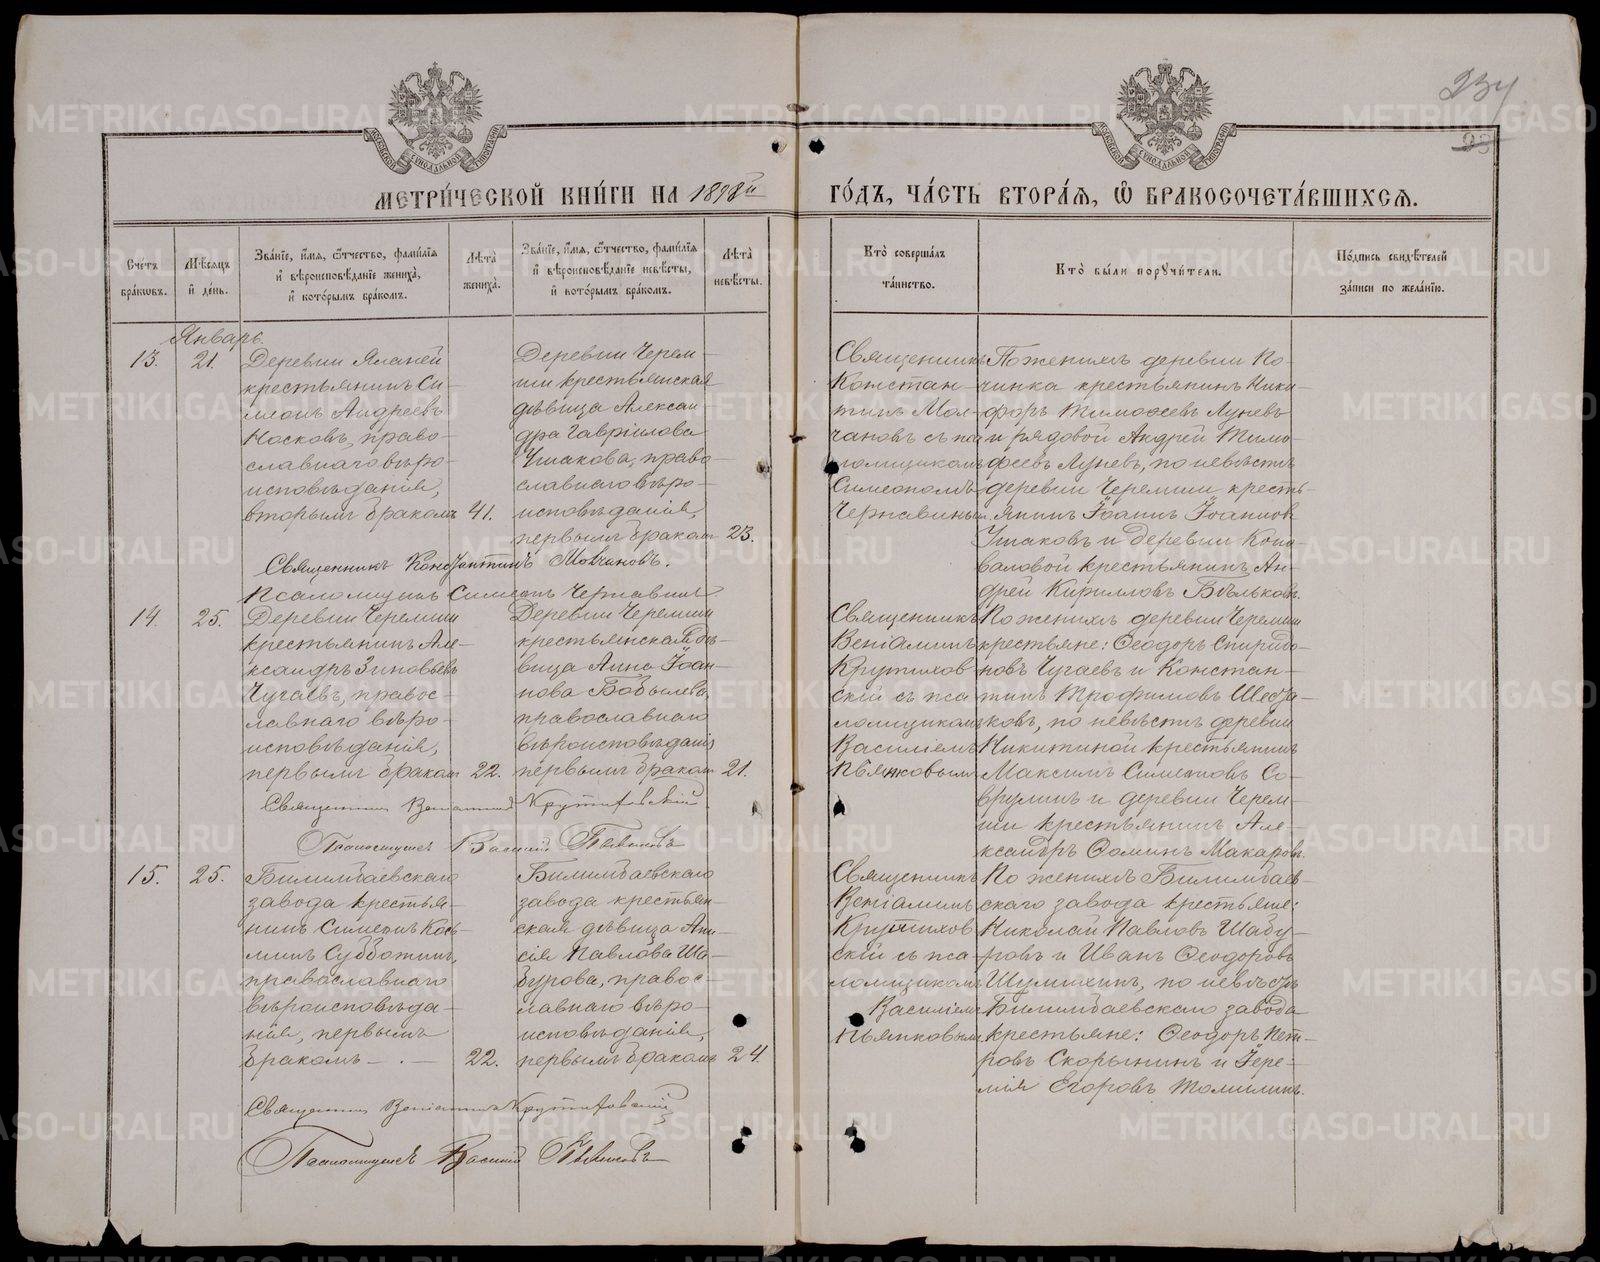 234
23
МЕТРИ́ЧЕСКОЙ КНИ́ГИ НА 1898й ГО́ДЪ, ЧА́СТЬ ВТОРА́Я, Ѿ БРАКОСОЧЕТА́ВШИХСЯ.
Сче́тъ бра́ковъ.
Мѣ́сяцъ и́ де́нь.
Зва́нїе, и́мя, ѻ́тчество, фами́лїя и́ вѣроисповѣ́данїе жениха̀, и́ кото́рымъ бра́комъ.
Лѣта̀ жениха̀.
Зва́нїе, и́мя, ѻ́тчество, фами́лїя и́ вѣроисповѣ́данїе невѣ́сты, и́ кото́рымъ бра́комъ.
Лѣта̀ невѣ́сты.
Кто̀ соверша́лъ та́инство.
Кто̀ бы́ли порꙋчи́тели.
По́дпись свидѣ́телей за́писи по жела́нїю.
Январь.
13.
21.
Деревни Яланей
крестьянинъ Си-
меонъ Андреевъ
Носковъ, право-
славнаго вѣро-
исповѣданія,
вторымъ бракомъ
41.
Деревни Черем-
ши крестьянская
дѣвица Алексан-
дра Гавріилова
Ушакова, право-
славнаго вѣро-
исповѣданія,
первымъ бракомъ
23.
Священникъ
Констан-
тинъ Мол-
чановъ съ пса
ломщикомъ
Симеономъ
Чернавинымъ.
По женихѣ деревни По-
чинка крестьянинъ Ники-
форъ Тимоѳеевъ Луневъ
и рядовой Андрей Тимо-
феевъ Луневъ, по невѣстѣ
деревни Черемши кресть-
янинъ Іоаннъ Іоанновъ
Ушаковъ и деревни Коно-
валовой крестьянинъ Ан-
дрей Кирилловъ Бѣльковъ.
Священникъ Константинъ Молчановъ.
Псаломщикъ Симеонъ Чернавинъ
14.
25.
Деревни Черемши
крестьянинъ Але-
ксандръ Зиновьевъ
Чугаевъ, правос-
лавнаго вѣро-
исповѣданія,
первымъ бракомъ
22.
Деревни Черемши
крестьянская дѣ-
вица Анна Іоан-
нова Бобылева,
православнаго
вѣроисповѣданія
первымъ бракомъ
21.
Священникъ
Веніаминъ
Крутихов
скій съ пса
ломщикомъ
Василіемъ
Пьянковымъ
По женихѣ деревни Черемши
крестьяне: Ѳеодоръ Спиридо-
новъ Чугаевъ и Констан-
тинъ Трофимовъ
ковъ, по невѣстѣ деревни
Никитиной крестьянинъ
Максимъ Симеоновъ Со-
врулинъ и деревни Черем-
ши крестьянинъ Але-
ксандръ Ѳоминъ Макаровъ.
Священникъ Веніаминъ Крутиховскій
Псаломщикъ Василій Пьянковъ
15.
25.
Билимбаевскаго
завода крестья-
нинъ Симеонъ Кось-
минъ Субботинъ,
православнаго
вѣроисповѣда-
нія, первымъ
бракомъ — . —
22.
Билимбаевскаго
завода крестьян-
ская дѣвица Ани-
сія Павлова Ша-
бурова, правос-
лавнаго вѣро-
исповѣданія,
первымъ бракомъ
24
Священникъ
Веніаминъ
Крутихов
скій съ пса
ломщикомъ
Василіемъ
Пьянковымъ
По женихѣ Билимбаев-
скаго завода крестьяне:
Николай Павловъ Шабу-
ровъ и Иванъ Ѳеодоровъ
Шулинъ, по невѣстѣ
Билимбаевскаго завода
крестьяне: Ѳеодоръ Пет-
ровъ Скорынинъ и Іере-
мія Егоровъ Томилинъ.
Священникъ Веніаминъ Крутиховскій
Псаломщикъ Василій Пьянковъ